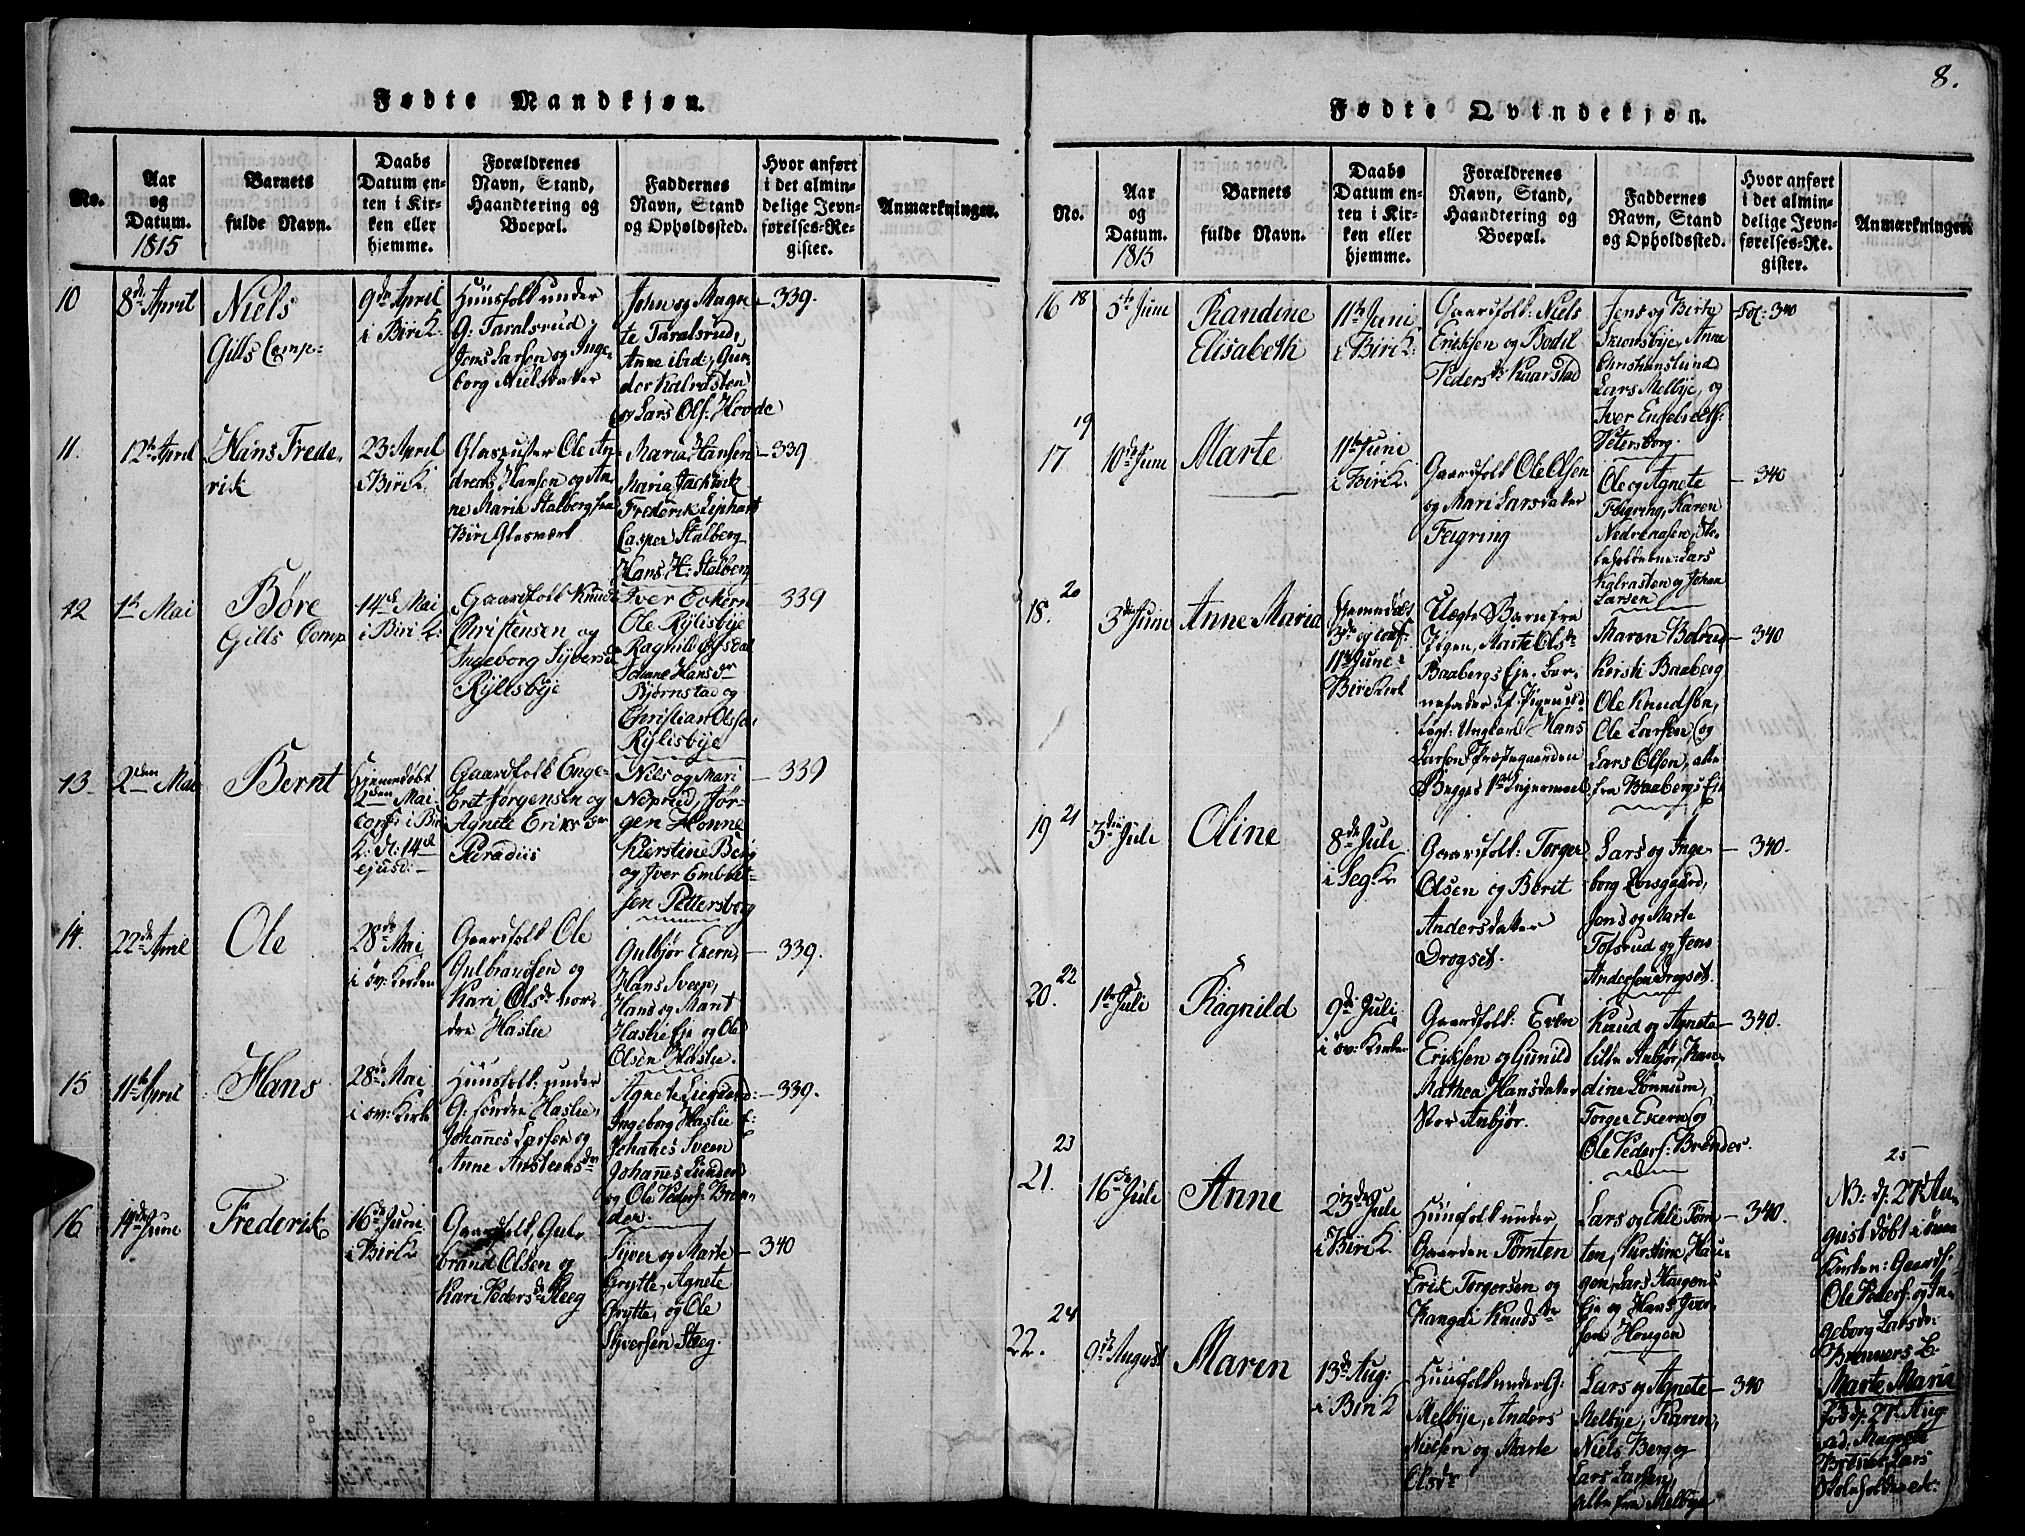 8.
Fødte Mandkjøn.
No.
Aar
og
Datum.
1815
Barnets
fulde Navn.
Daabs
Datum en-
ten i Kir-
ken eller
hjemme.
Forældrenes
Navn, Stand,
Haandtering og
Boepæl.
Faddernes
Navn, Stand
og Opholdssted.
Hvor anført
i det almin-
delige Jevn-
førelses-Re-
gister.
Anmærkninger.
10
8de April
Niels
Gills Comp:
9de April
i Biri K:
Huusfolk under
G: Taralsrud,
Jens Larsen og Inge-
borg Nielsdatter
John og Magne-
te Taralsrud,
Anne ibid:, Gun-
der Kalrasten
og Lars Ols: Hovde
339.
11.
12te April
Hans Frede-
rik
23de April
i Biri K.
Glaspuster Ole An-
dreas Hansen og An-
ne Maria Stalberg
Biri Glasværk
Maria Hansen
Maria
Frederik Liphart
Casper Stalberg
Hans H: Stalberg
339
12
1ste Mai
Børe
Gills Comp
14de Mai
i Biri K:
Gaardfolk Knud
Christensen og
Ingeborg Syversd
Rylisbye
Iver Eckern
Ole Rylisbye
Ragnild
Johane Hansdr
Bjørnstad og
Christian Olsen
Rylisbye
339
13
2den Mai
Bernt
Hjemmedøbt
2den Mai
conf: i Biri
K: d: 14de
ejusd:
Gaardfolk Enge-
bret Jørgensen og
Agnete Eriksdr
Paradiis
Niels og Mari
Neperud, Jør-
gen Honne
Kierstine Berg
og Iver Embret-
sen Pettersborg
339
14.
22de April
Ole
28de Mai
i øv: Kirken
Gaardfolk Ole
Gulbrandsen og
Kari Olsdr nor-
dre Haslie
Gulbjør Ekern,
Hans Sveen,
Hans og Marit
Haslie Eje og Ole
Olsen Haslie.
339.
15
11te April
Hans
28de Mai
i øv: Kirke
Huusfolk under
G: søndre Haslie,
Johannes Larsen og
Anne Austensdr
Agnete
Ingeborg Haslie E:
Johanes Sveen
Johannes Lunden
og Ole Peders: Bren-
der.
339.
16
14de Juni
Frederik
16de Juni
i Biri K
Gaardfolk, Gul-
brand Olsen og
Kari Pedersdr Steeg
Syver og Marte
Grytte, Agnete
Grytte, og Ole
Syversen Steeg.
340
Fødte Qvindekjøn.
No.
Aar
og
Datum.
1815
Barnets
fulde Navn.
Daabs
Datum en-
ten i Kir-
ken eller
hjemme.
Forældrenes
Navn, Stand,
Haandtering og
Boepæl.
Faddernes
Navn, Stand
og Opholdssted.
Hvor anført
i det almin-
delige Jevn-
førelses-Re-
gister.
Anmærkninger.
16 18
5te June
Randine
Elisabeth
11te Juni
i Biri K:
Gaardfolk: Niels
Eriksen og Bodil
Pedersdr Kaarstad
Jens og Birte
Skionsbye, Anne
Christianslund,
Lars Melbye, og
Iver Engebretss:
Petersborg.
Fol: 340
17 19
10de June
Marte
11te June
i Biri K.
Gaardfolk Ole Olsen
og Mari Larsdatter
Feigring
Ole og Agnete
Feigring, Karen
Nedrenasen, Sko-
leholderne: Lars
Kalrasten og Johan
Larsen
340
18. 20
3die June
Anne Maria
Hjemmedøbt
3die og conf.
11te June i
Biri Kirk
Uægte Barn fra
Pigen, Marte Olsdr
Baabergs Eje. Bar-
nefader af Pigen ud-
lagt: Ungkarl Hans
Larsen Præstegaarden
Maren Bolrud
Kersti Baaberg
Ole Knudsen,
Ole Larsen og
Lars Olsen, alle
fra Baabergs Eje
340
19 21
3die Jule
Oline
8de Jule
i Seg: K.
Gaardfolk: Torger
Olsen og Berit
Andersdatter
Drogset.
Lars og Inge-
borg Korsgaard,
Jens og Marte
Tofsrud og Jens
Andersen Drogset.
340.
20. 22
1ste Juli
Ragnild
9de Juli
i øv: Kirke
Gaardfolk: Even
Eriksen og Gunild
Mathea Hansdatter
Stor Anbjør.
Knud og Agnete
lille Anbjør, Ran-
dine Lønnum,
Torger Ekern og
Ole Peders: Brender.
340.
21. 23
16de Jule
Anne
23de Jule
i Biri K.
Huusfolk under
Gaarden Tømten
Erik Torgersen og
Rangdi Knudsdr
Lars og Eli Tøm-
ten, Kirstine Hau-
gen, Lars Haugens
Eje og Hans Iver-
sen Hougen
340.
22. 24
9de August
Maren
13de Aug:
i Biri K
Huusfolk under G:
Melbye, Anders
Nielsen og Marte
Olsdr
Lars og Agnete
Melbye, Karen,
Niels Berg og
Lars Larsen,
alle fra Melbye
340
25
NB: d: 27de Au-
gust døbt i øvre
Kirken: Gaardf:
Ole Peders: og In-
geborg Larsdr
Brenners B.
Marte Maria
fød d: 27de Aug
Fad: Magnete
Brenner, Lars
Skoleholder etc: